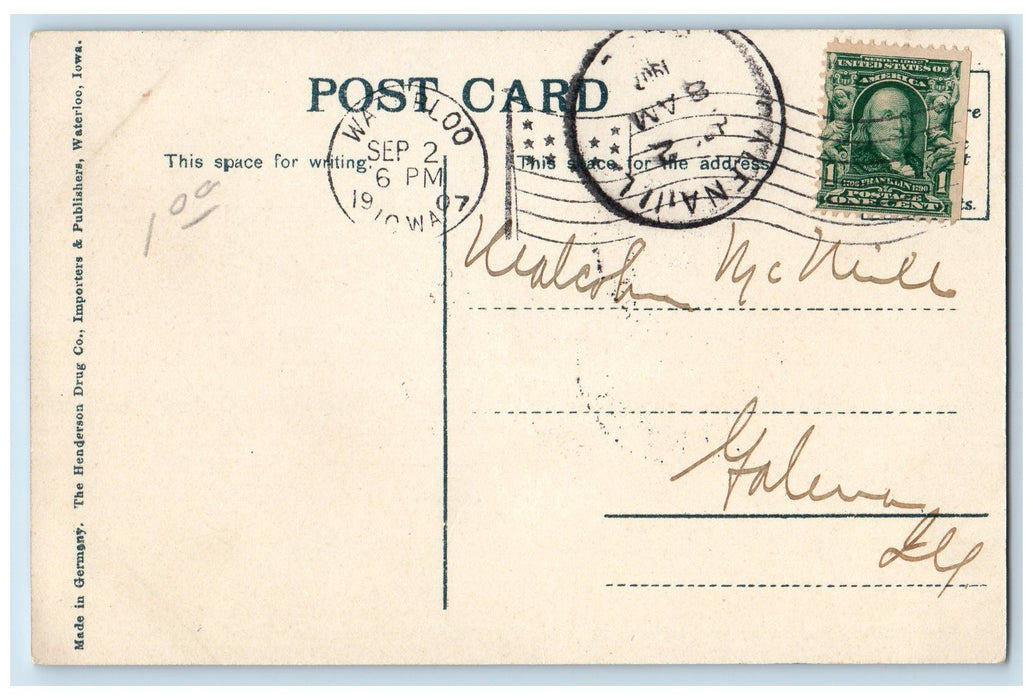 POST CARD
This space for writing.
This space for the address
WATERLOO
SEP 2
6 PM
1907
IOWA
GALENA, ILL.
8 AM
1907
SERIES 1902
UNITED STATES OF
AMERICA
1706 FRANKLIN 1790
1 POSTAGE 1
ONE CENT
1 00
Malcolm McNeill
Galena
Ill
Made in Germany. The Henderson Drug Co., Importers & Publishers, Waterloo, Iowa.